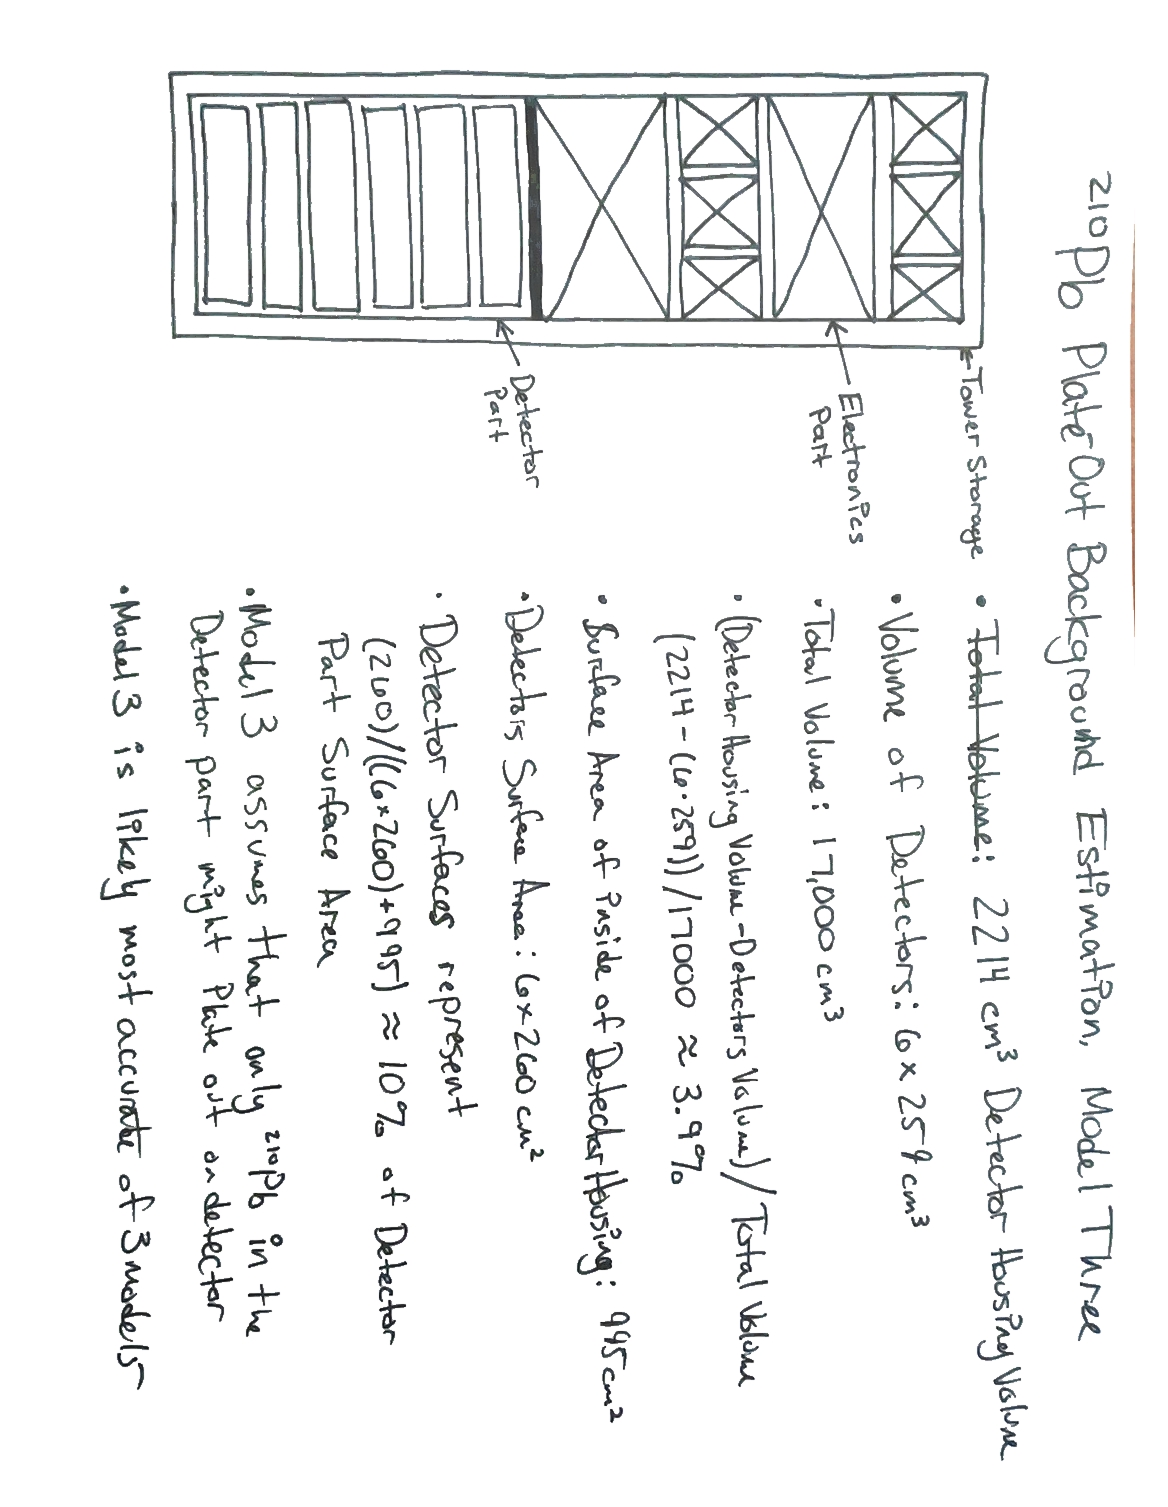 210Pb Plate Out Background Estimation, Model Three
← Tower Storage
Electronics
Part
Detector
Part
• Total Volume: 2214 cm³ Detector Housing Volume
• Volume of Detectors: 6 x 259 cm³
• Total Volume: 17,000 cm³
• (Detector Housing Volume - Detectors Volume) / Total Volume
(2214 - (6·259)) / 17000 ≈ 3.9%
• Surface Area of inside of Detector Housing: 995 cm²
• Detectors Surface Area: 6 x 260 cm²
• Detector Surfaces represent
(260)/((6×260)+995) ≈ 10% of Detector
Part Surface Area
• Model 3 assumes that only ²¹⁰Pb in the
Detector part might Plate out on detector
• Model 3 is likely most accurate of 3 models